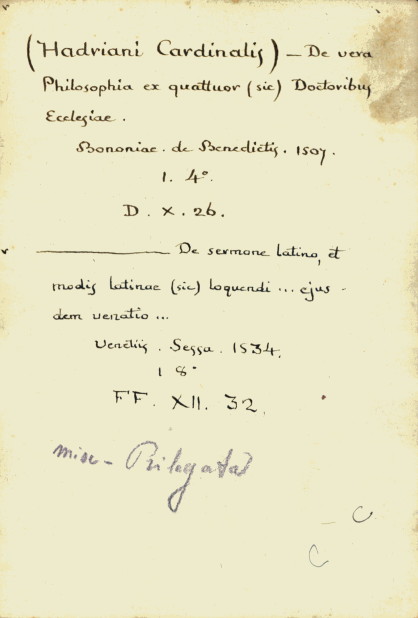 (Hadriani Cardinalis) – De vera
Philosophia ex quattuor (sic) Doctoribus
Ecclesiae.
Bononiae. de Benedictis. 1507.
1. 4°.
D. X. 26.
——— De sermone latino, et
modis latinae (sic) loquendi ... ejus-
dem venatio ...
Venetiis. Sessa. 1534.
1 8°
FF. XII. 32.
C
C